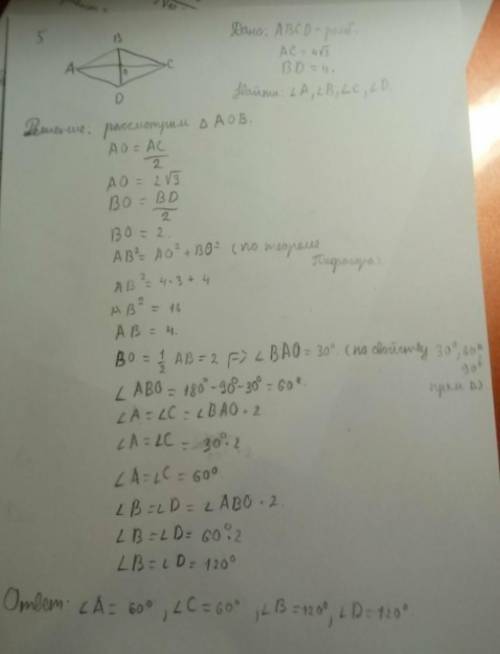 5
Дано: ABCD - ромб.
AC = 4√3
BD = 4.
Найти: ∠A, ∠B, ∠C, ∠D.
B
A
C
D
Решение: рассмотрим △ AOB.
AO = AC/2
AO = 2√3
BO = BD/2
BO = 2.
AB² = AO² + BO² (по теореме Пифагора)
AB² = 4·3 + 4
AB² = 16
AB = 4.
BO = 1/2 AB = 2 => ∠BAO = 30°. (по свойству 30°, 60°
90°
∠ABO = 180° - 90° - 30° = 60°.
∠A = ∠C = ∠BAO · 2
∠A = ∠C = 30° · 2
∠A = ∠C = 60°
∠B = ∠D = ∠ABO · 2.
∠B = ∠D = 60° · 2
∠B = ∠D = 120°
Ответ: ∠A = 60°, ∠C = 60°, ∠B = 120°, ∠D = 120°.